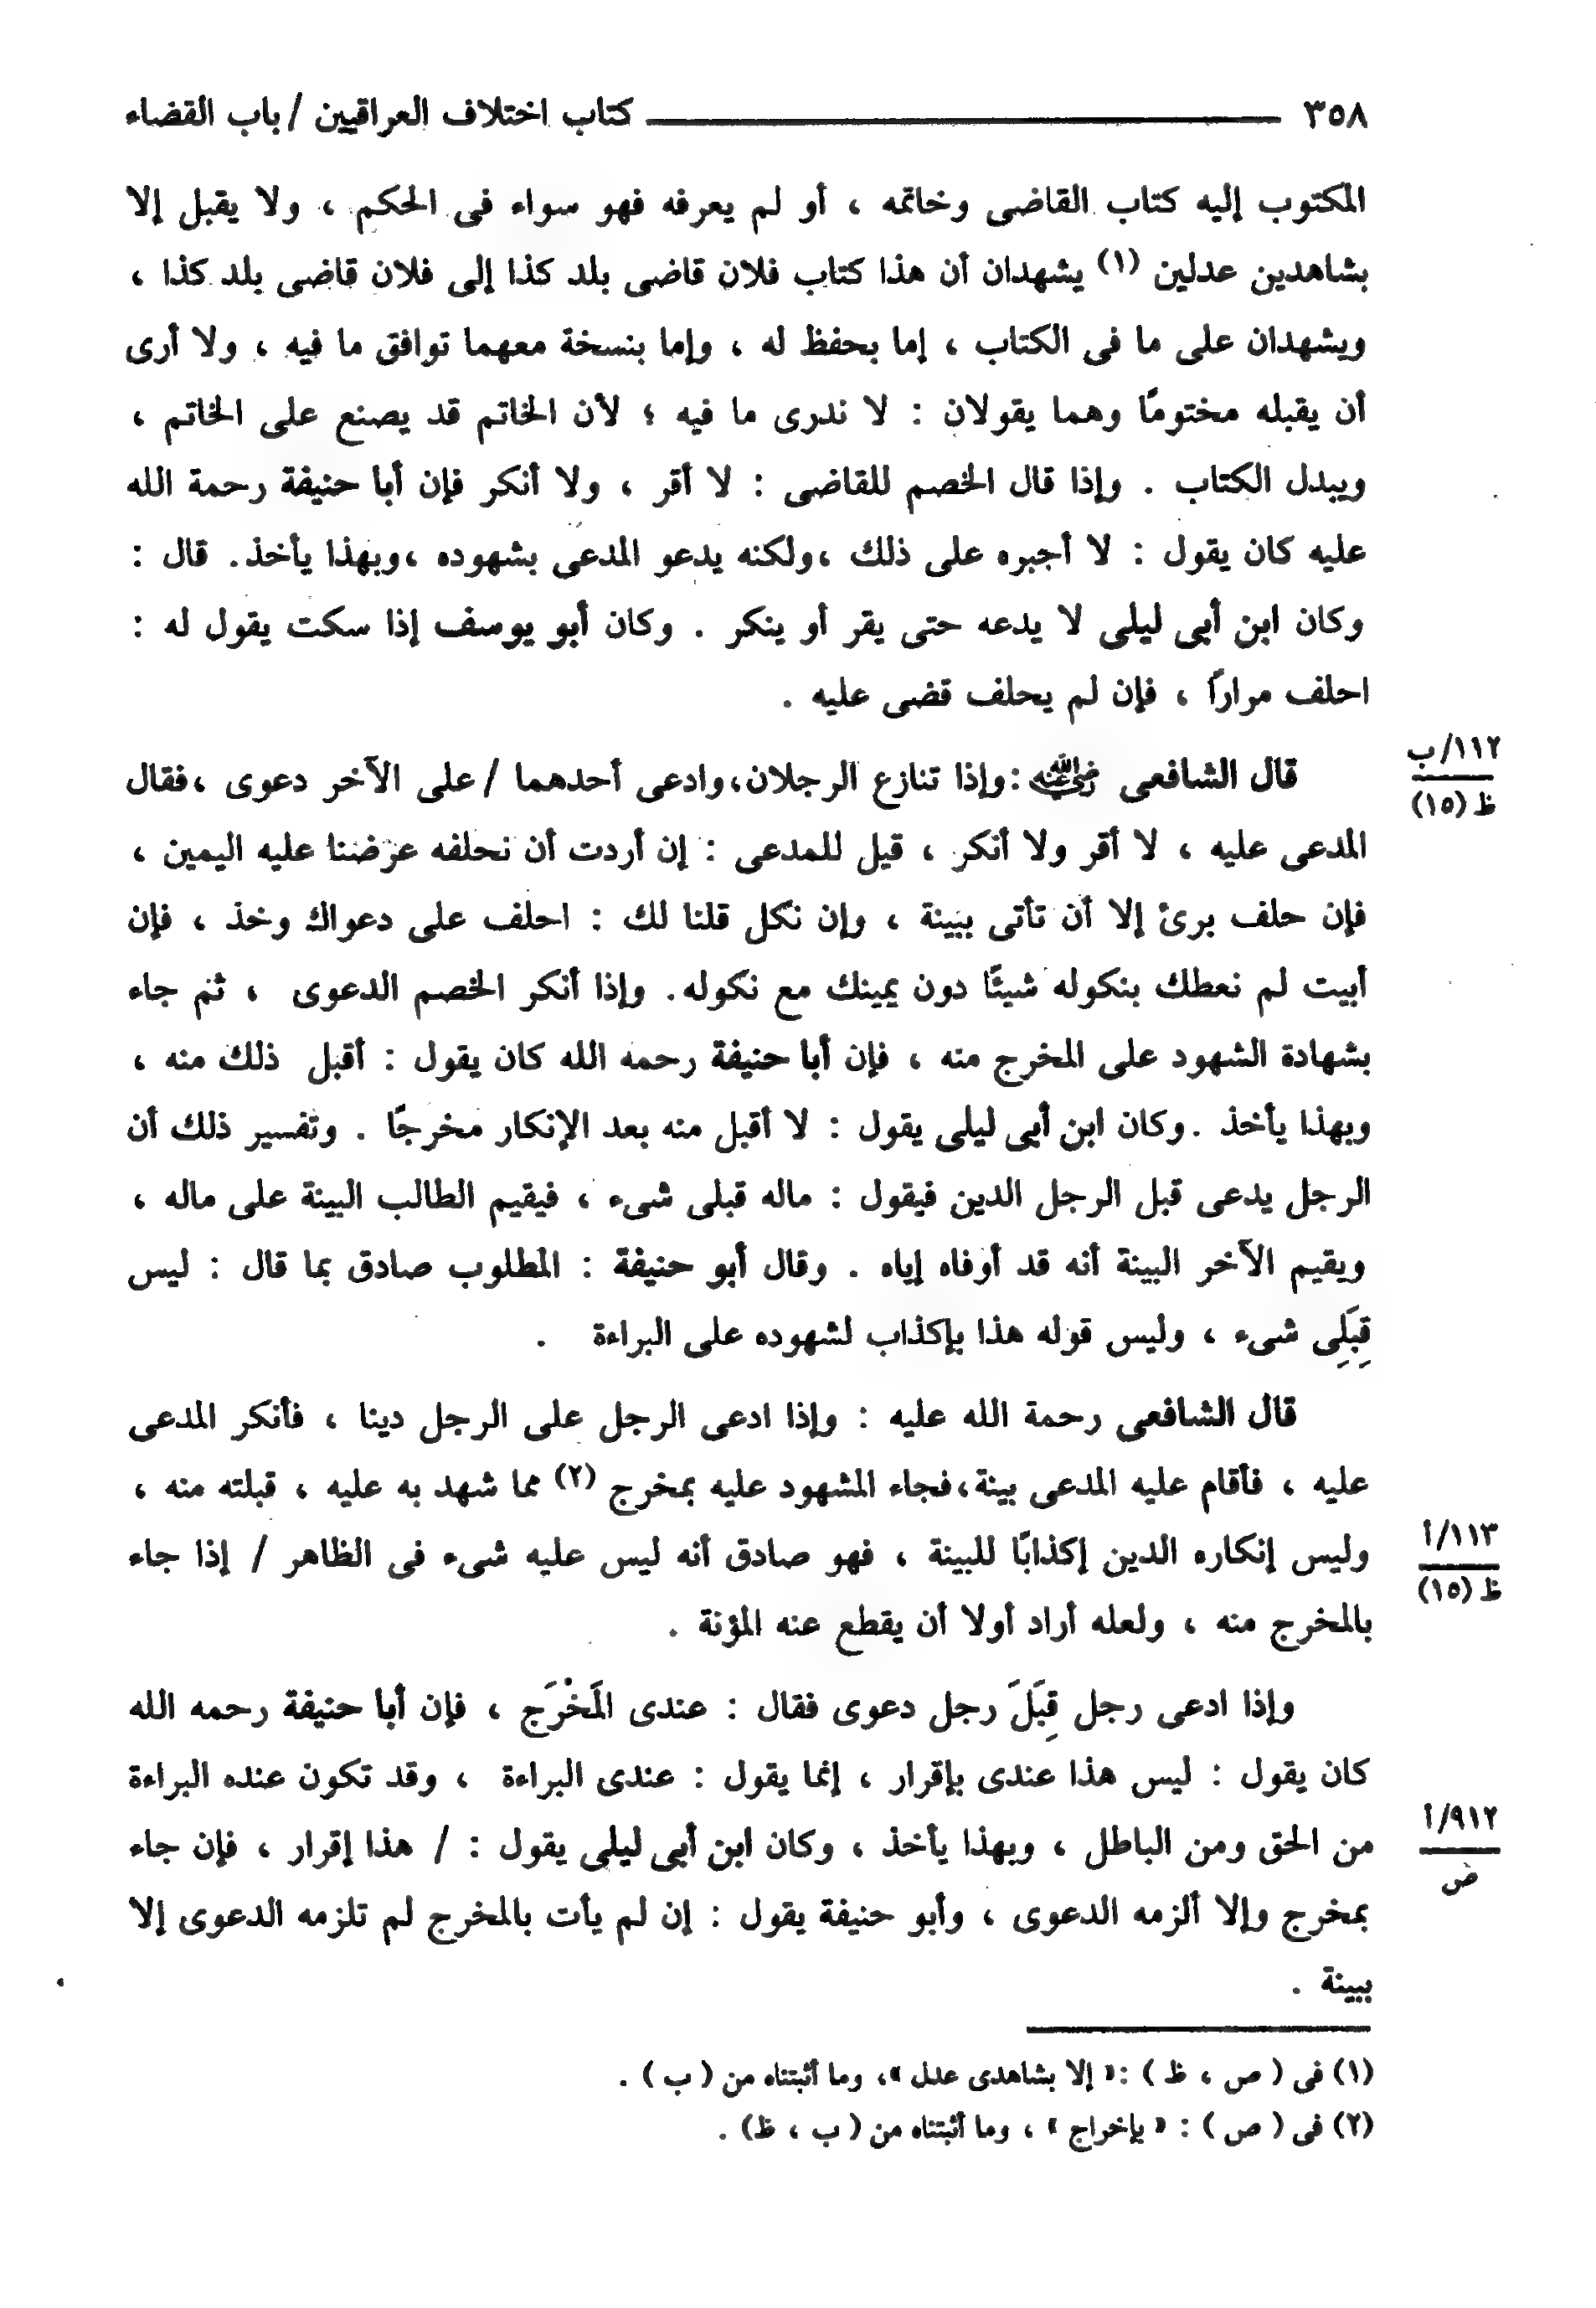 ٣٥٨ كتاب اختلاف العراقيين / باب القضاء
المكتوب إليه كتاب القاضى وخاتمه ، أو لم يعرفه فهو سواء فى الحكم ، ولا يقبل إلا
بشاهدين عدلين (١) يشهدان أن هذا كتاب فلان قاضى بلد كذا إلى فلان قاضى بلد كذا ،
ويشهدان على ما فى الكتاب ، إما بحفظ له ، وإما بنسخة معهما توافق ما فيه ، ولا أرى
أن يقبله مختومًا وهما يقولان : لا ندرى ما فيه ؛ لأن الخاتم قد يصنع على الخاتم ،
ويبدل الكتاب . وإذا قال الخصم للقاضى : لا أقر ، ولا أنكر فإن أبا حنيفة رحمة الله
عليه كان يقول : لا أجبره على ذلك ،ولكنه يدعو المدعى بشهوده ،وبهذا يأخذ. قال :
وكان ابن أبى ليلى لا يدعه حتى يقر أو ينكر . وكان أبو يوسف إذا سكت يقول له :
احلف مرارًا ، فإن لم يحلف قضى عليه .
١١٢/ب
ظ (١٥)
قال الشافعى رضي الله عنه :وإذا تنازع الرجلان،وادعى أحدهما / على الآخر دعوى ،فقال
المدعى عليه ، لا أقر ولا أنكر ، قيل للمدعى : إن أردت أن نحلفه عرضنا عليه اليمين ،
فإن حلف برئ إلا أن تأتى ببينة ، وإن نكل قلنا لك : احلف على دعواك وخذ ، فإن
أبيت لم نعطك بنكوله شيئًا دون يمينك مع نكوله. وإذا أنكر الخصم الدعوى ، ثم جاء
بشهادة الشهود على المخرج منه ، فإن أبا حنيفة رحمه الله كان يقول : أقبل ذلك منه ،
وبهذا يأخذ .وكان ابن أبى ليلى يقول : لا أقبل منه بعد الإنكار مخرجًا . وتفسير ذلك أن
الرجل يدعى قبل الرجل الدين فيقول : ماله قبلى شىء ، فيقيم الطالب البينة على ماله ،
ويقيم الآخر البينة أنه قد أوفاه إياه . وقال أبو حنيفة : المطلوب صادق بما قال : ليس
قِبَلِى شىء ، وليس قوله هذا بإكذاب لشهوده على البراءة .
قال الشافعى رحمة الله عليه : وإذا ادعى الرجل على الرجل دينا ، فأنكر المدعى
عليه ، فأقام عليه المدعى بينة،فجاء المشهود عليه بمخرج (٢) مما شهد به عليه ، قبلته منه ،
وليس إنكاره الدين إكذابًا للبينة ، فهو صادق أنه ليس عليه شىء فى الظاهر / إذا جاء
١١٣/أ
ظ (١٥)
بالمخرج منه ، ولعله أراد أولا أن يقطع عنه المؤنة .
وإذا ادعى رجل قِبَلَ رجل دعوى فقال : عندى المَخْرَج ، فإن أبا حنيفة رحمه الله
كان يقول : ليس هذا عندى بإقرار ، إنما يقول : عندى البراءة ، وقد تكون عنده البراءة
من الحق ومن الباطل ، وبهذا يأخذ ، وكان ابن أبى ليلى يقول : / هذا إقرار ، فإن جاء
٩١٢/أ
ص
بمخرج وإلا ألزمه الدعوى ، وأبو حنيفة يقول : إن لم يأت بالمخرج لم تلزمه الدعوى إلا
ببينة .
(١) فى ( ص ، ظ ) :« إلا بشاهدى عدل »، وما أثبتناه من ( ب ) .
(٢) فى ( ص ) : « بإخراج » ، وما أثبتناه من ( ب ، ظ) .